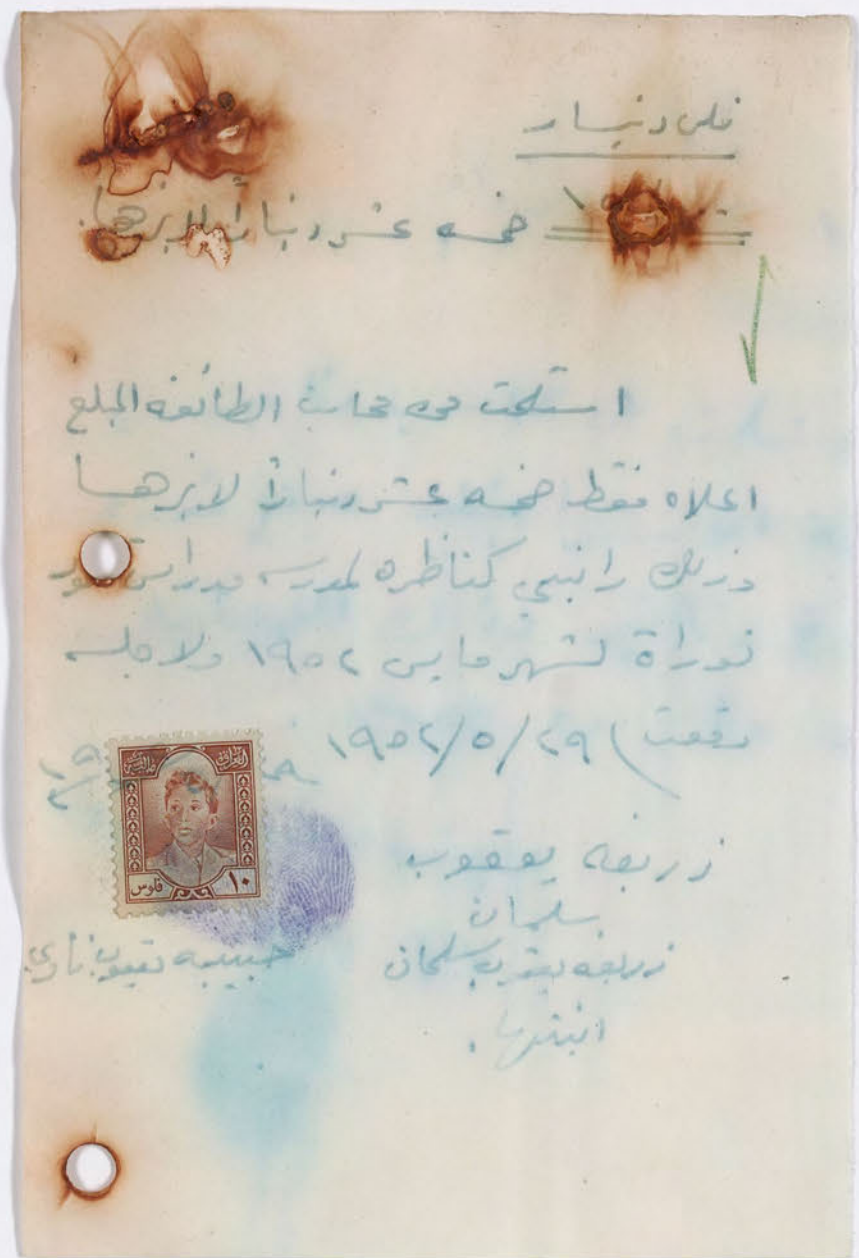 فلس دينار
خمسه عشر ديناراً لا غيرها
استلمت من محاسب الطائفه المبلغ
اعلاه فقط خمسه عشر ديناراً لا غيرها
وذلك راتبي كناظره لمدرسه مدراس
توراة لشهر مايس ١٩٥٢ ولاجله
وقعت) ٢٩/٥/١٩٥٢
العراق مالية
١٠ فلوس
زريفه يعقوب
سلمان
زريفه يعقوب سلمان
حبيبه يعقوب
ابنتها.